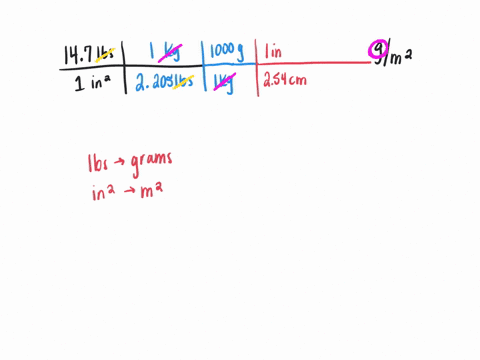 14.7 lbs 1 kg 1000 g 1 in g/m²
1 in² 2.205 lbs 1 kg 2.54 cm
lbs → grams
in² → m²